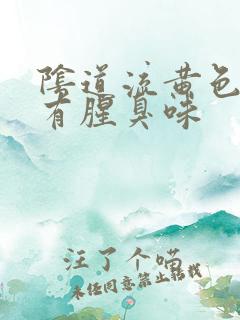 陰道流黄色
有腥臭味
汪了个喵
未经同意禁止转载